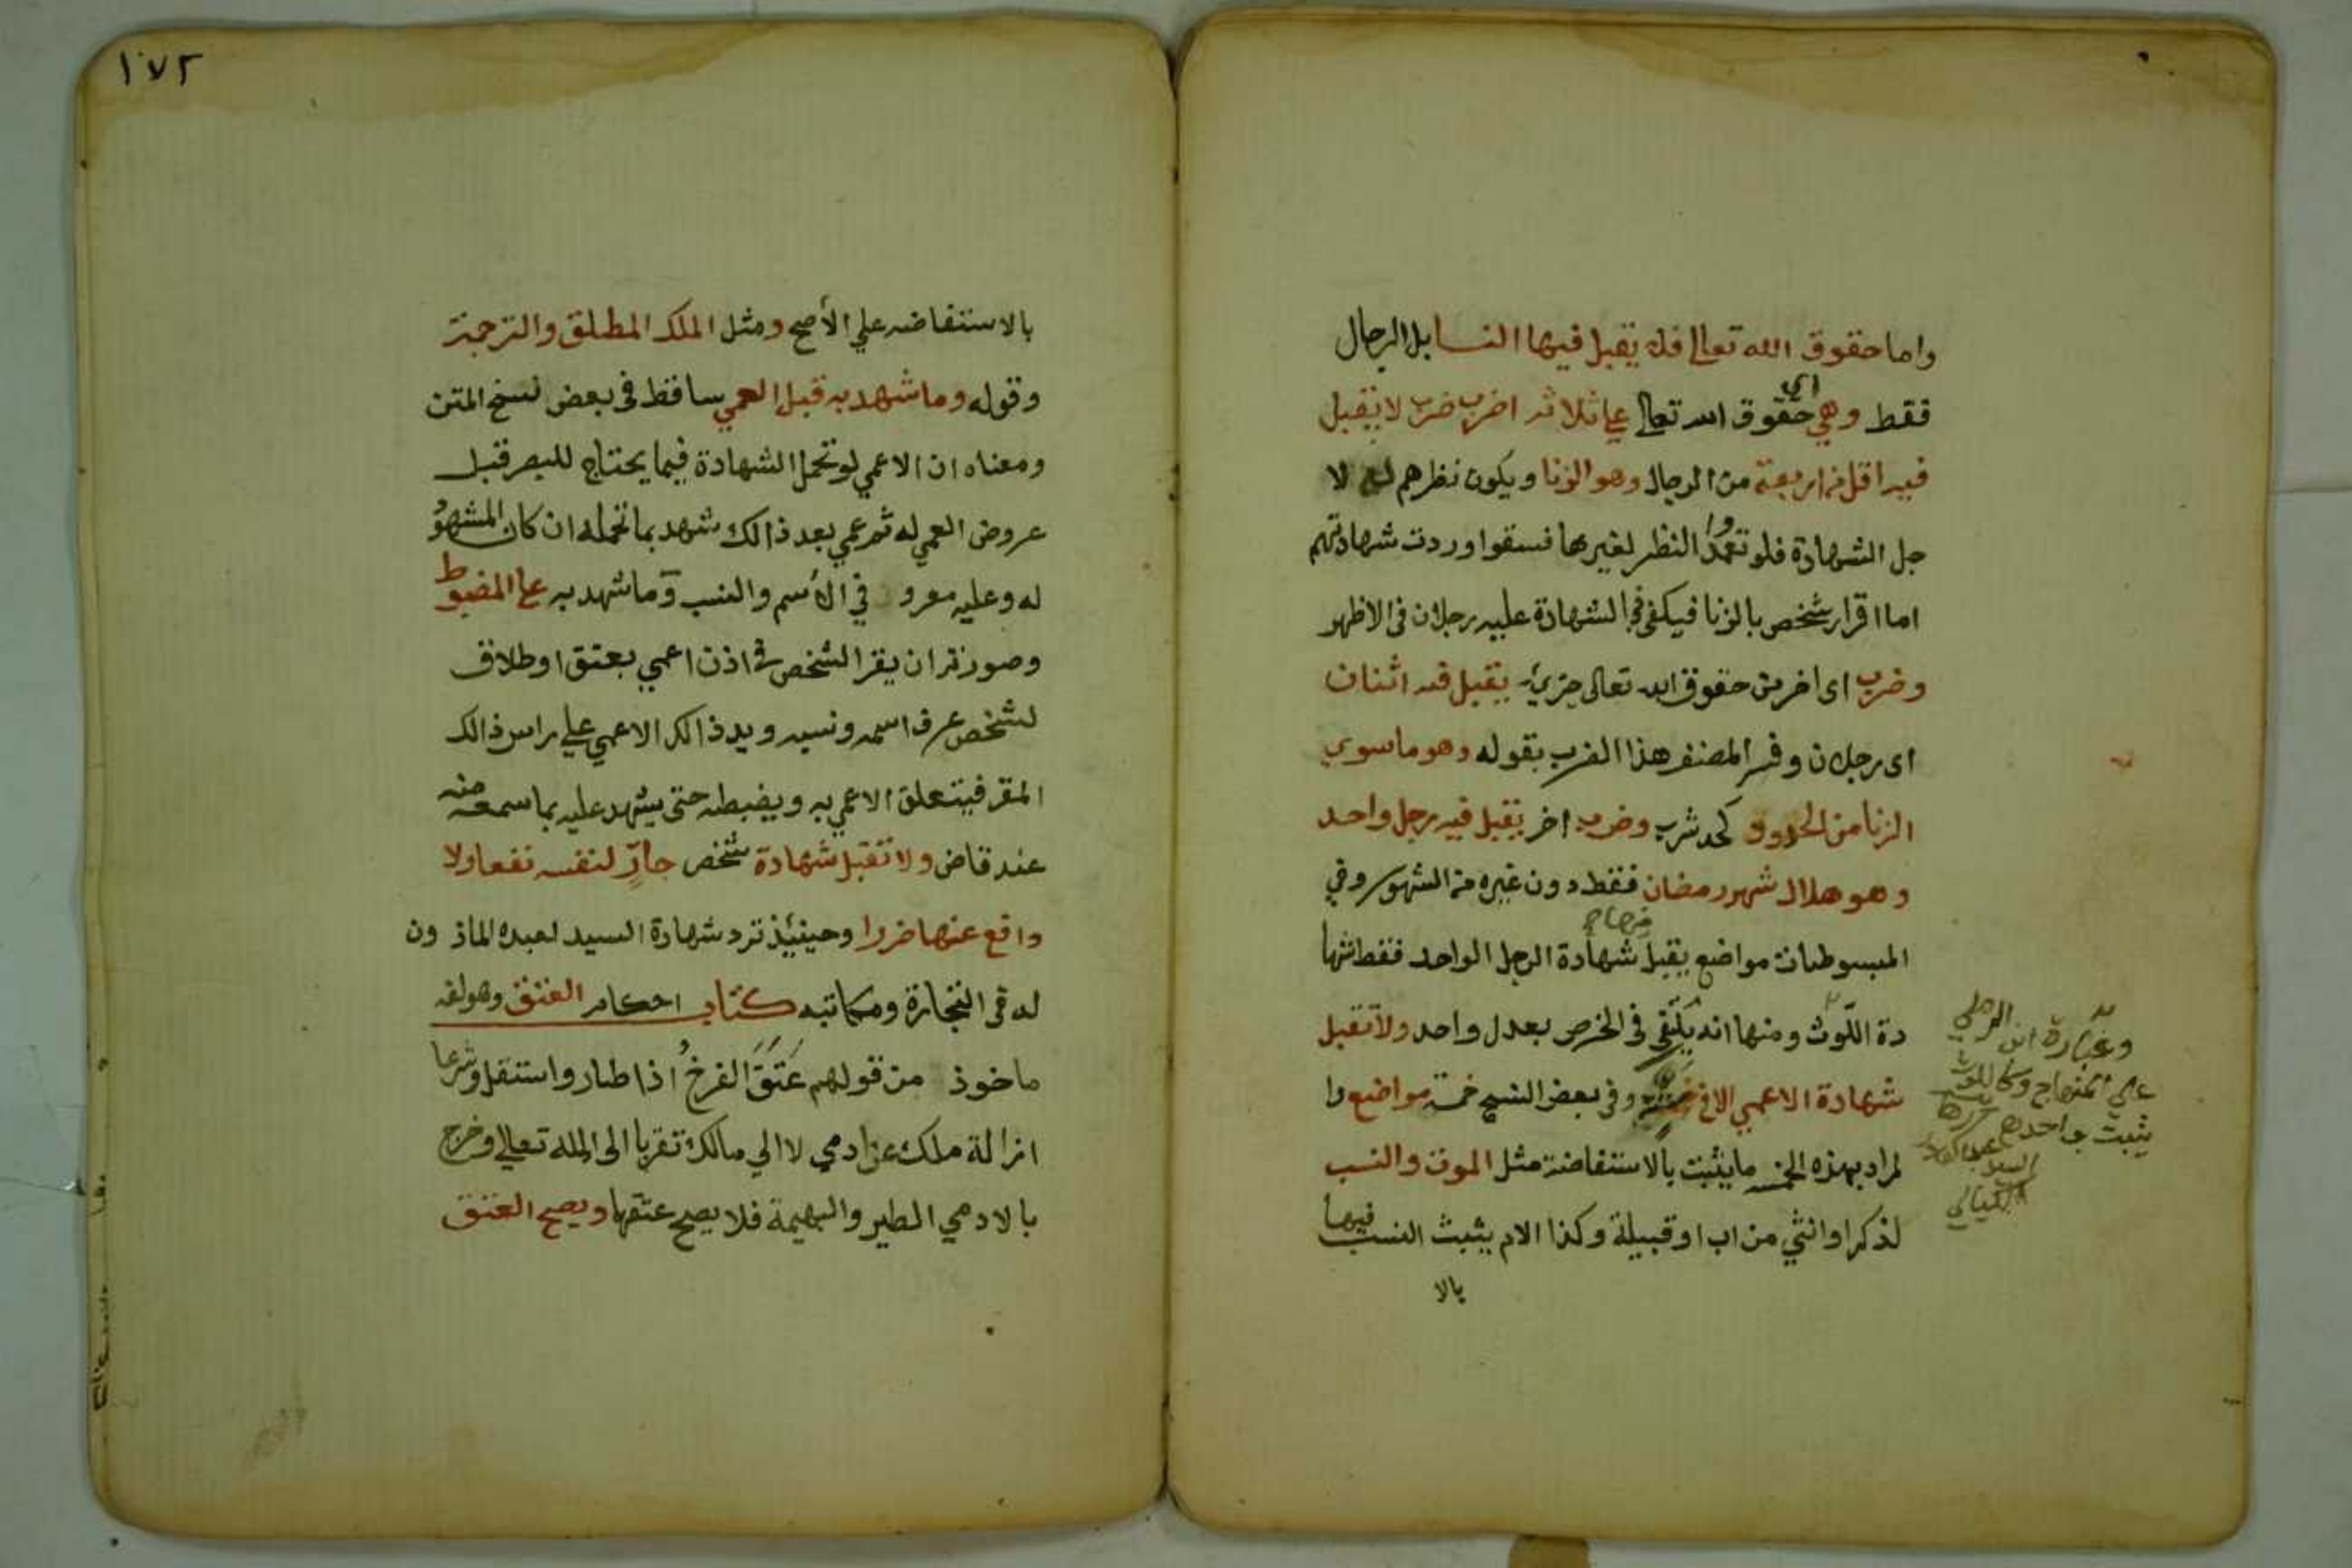 واما حقوق الله تعالى فلا يقبل فيها النسا بل الرجال
فقط وهي اى حقوق الله تعالى على ثلاثة اضرب ضرب لا يقبل
فيه اقل من اربعة من الرجال وهو الزنا ويكون نظرهم له لا
جل الشهادة فلو تعمدوا النظر لغيرها فسقوا وردت شهادتهم
اما اقرار شخص بالزنا فيكفي في الشهادة عليه رجلان في الاظهر
وضرب اى اخر من حقوق الله تعالى يقبل فيه اثنان
اى رجلان وفسر المصنف هذا الضرب بقوله وهو ما سوى
الزنا من الحدود كحد شرب وضرب اخر يقبل فيه رجل واحد
وهو هلال شهر رمضان فقط دون غيره من الشهور وفي
المبسوطات مواضع يقبل شهادة الرجل الواحد فقط شها
دة اللوث ومنها انه يكتفي في الخرص بعدل واحد ولا تقبل
شهادة الاعمى الا في وفي بعض النسخ خمسة مواضع وا
لمراد بهذه الخمسة ما يثبت بالاستفاضة مثل الموت والنسب
لذكر او انثي من اب او قبيلة وكذا الام يثبت النسب فيها
بالا
وعبارة ابن الرملي
على المنهاج وكاللوث
يثبت بواحد
السيد
١٧٢
بالاستفاضه علي الأصح ومثل الملك المطلق والترجمة
وقوله وما شهد به قبل العمي ساقط في بعض نسخ المتن
ومعناه ان الاعمي لو تحمل الشهادة فيما يحتاج للبصر قبل
عروض العمي له ثم عمي بعد ذالك شهد بما تحمله ان كان المشهو
له وعليه معرو في الأسم والنسب وما شهد به علي المضبوط
وصورته ان يقر الشخص في اذن اعمي بعتق او طلاق
لشخص عرف اسمه ونسبه ويد ذالك الاعمي علي راس ذالك
المقر فيتعلق الاعمي به ويضبطه حتى يشهد عليه بما سمعه منه
عند قاض ولا تقبل شهادة شخص جارٍّ لنفسه نفعا ولا
دافع عنها ضررا وحينئذ ترد شهادة السيد لعبده الماذ ون
له في التجارة ومكاتبه كتاب احكام العتق وهو لغه
ماخوذ من قولهم عَتَقَ الفرخُ اذا طار واستقل وشرعا
ازالة ملك عن ادمي لا الي مالك تقربا الى الله تعالي وخرج
بالادمي الطير والبهيمة فلا يصح عتقها ويصح العتق